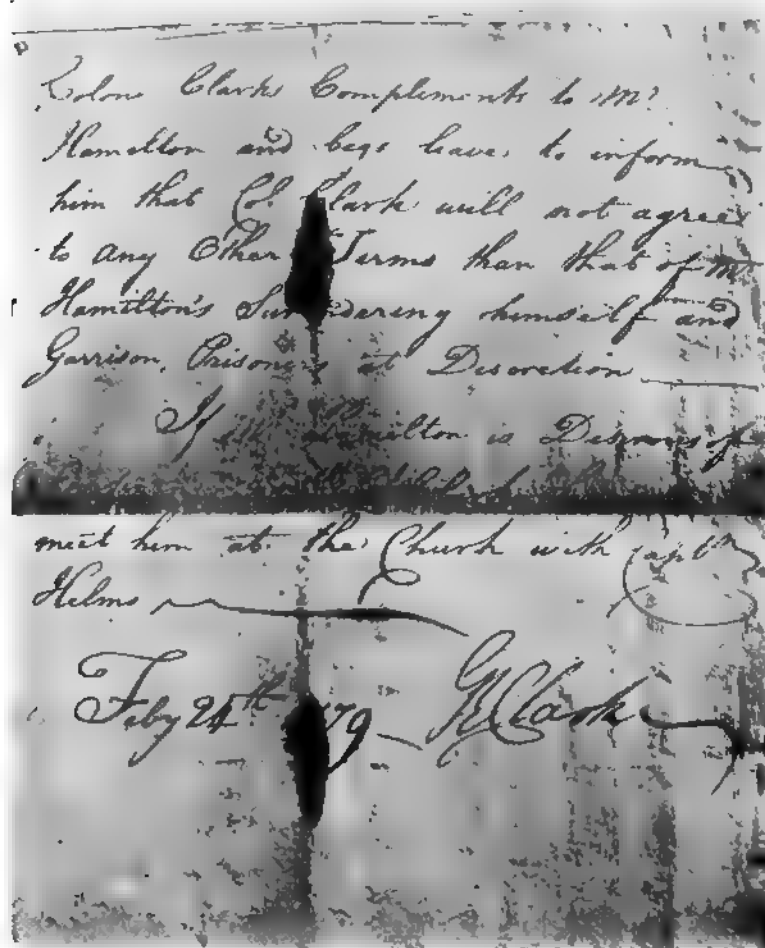 Colons Clarks Complements to Mr
Hamilton and begs leave to inform
him that Col. Clark will not agree
to any Other Terms than that of Mr
Hamilton's Surendering himself and
Garrison, Prisoners at Discretion
If Mr Hamilton is Desirous of
meet him at the Church with Capt
Helms
Feby 24th 79 GRClark